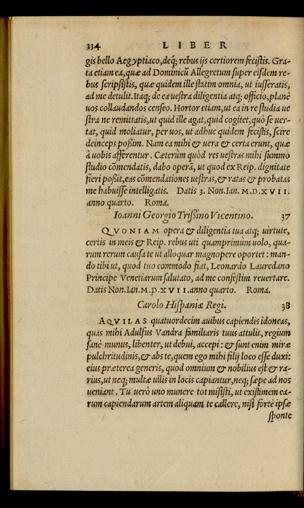 334 LIBER
gis bello Aegyptiaco, deq́; rebus ijs certiorem fecistis. Gra-
ta etiam ea, quæ ad Dominicū Allegretum super eisdem re-
bus scripsistis, quæ quidem ille statim omnia, ut iusseratis,
ad me detulit. Itaq; de ea uestra diligentia atq; officio, planè
uos collaudandos censeo. Hortor etiam, ut ea in re studia ue
stra ne remittatis, ut quid ille agat, quid cogitet, quò se uer-
tat, quid moliatur, per uos, ut adhuc quidem fecistis, scire
deinceps possim. Nam ea mihi & uera & certa erunt, quæ
à uobis afferentur. Cæterùm quòd res uestras mihi summo
studio cōmendatis, dabo operā, ut quod ex Reip. dignitate
fieri possit, eas cōmendationes uestras, & ratas & probatas
me habuisse intelligatis. Datis 3. Non. Ian. M.D.XVII.
anno quarto. Roma.
Ioanni Georgio Trissino Vicentino. 37
QVONIAM opera & diligentia tua atq; uirtute,
certis in meis & Reip. rebus uti quamprimum uolo, qua-
rum rerum causa te ut alloquar magnopere oportet: man-
do tibi ut, quod tuo commodo fiat, Leonardo Lauredano
Principe Venetiarum salutato, ad me confestim reuertare.
Datis Non. Ian. M.D.XVII. anno quarto. Roma.
Carolo Hispaniæ Regi. 38
AQVILAS quatuordecim auibus capiendis idoneas,
quas mihi Adulfus Vandra familiaris tuus attulit, regium
sanè munus, libenter, ut debui, accepi: & sunt enim miræ
pulchritudinis, & abs te, quem ego mihi filij loco esse duxi:
eius præterea generis, quod omnium & nobilius est & ra-
rius, ut neq; multæ ullis in locis capiantur, neq; sæpe ad nos
ueniant. Tu uerò uno munere tot misisti, ut existimem ea-
rum capiendarum artem aliquam te callere, nisi fortè ipsæ
sponte